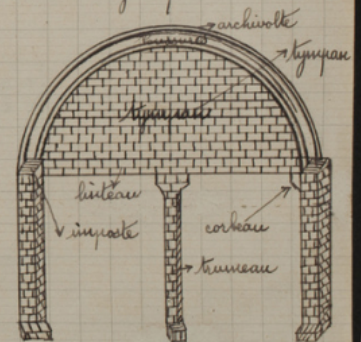 archivolte
voussures
tympan
tympan
linteau
imposte
corbeau
trumeau